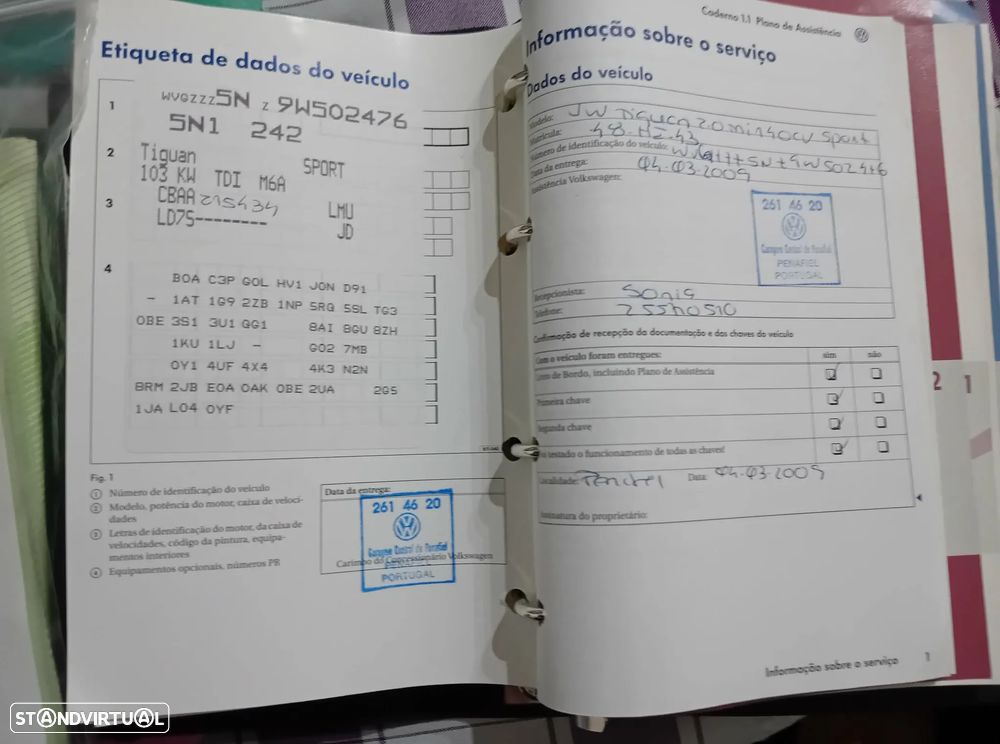 Etiqueta de dados do veículo
1
WVGZZZ5N Z 9W502476
5N1 242
2
Tiguan SPORT
103 KW TDI M6A
3
CBAA 215434 LMU
LD7S-------- JD
4
BOA C3P GOL HV1 JON D91
- 1AT 1G9 2ZB 1NP 5RQ 5SL TG3
OBE 3S1 3U1 GG1 8AI 8GU 8ZH
1KU 1LJ - GO2 7MB
OY1 4UF 4X4 4K3 N2N
BRM 2JB EOA OAK OBE 2UA 2G5
1JA LO4 OYF
Fig. 1
① Número de identificação do veículo
② Modelo, potência do motor, caixa de veloci-
dades
③ Letras de identificação do motor, da caixa de
velocidades, código da pintura, equipa-
mentos interiores
④ Equipamentos opcionais, números PR
Data da entrega:
261 46 20
Garagem Central de Penafiel
PENAFIEL
Carimbo do Concessionário Volkswagen
PORTUGAL
Caderno 1.1 Plano de Assistência
Informação sobre o serviço
Dados do veículo
Modelo: Tiguan 2.0 140cv Sport
Matrícula: 48-HI-43
Número de identificação do veículo:
Data da entrega: 04-03-2009
Assistência Volkswagen:
261 46 20
Garagem Central de Penafiel
PENAFIEL
PORTUGAL
Recepcionista: Sonia
Telefone:
Confirmação de recepção da documentação e das chaves do veículo
Com o veículo foram entregues: sim não
Livro de Bordo, incluindo Plano de Assistência
Primeira chave
Segunda chave
Foi testado o funcionamento de todas as chaves?
Localidade: Penafiel Data: 04-03-2009
Assinatura do proprietário:
Informação sobre o serviço 1
2 1
STANDVIRTUAL